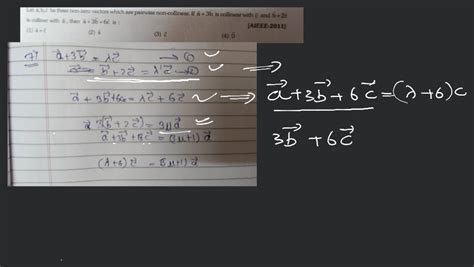 Let a, b, c be three non-zero vectors which are pairwise non-collinear. If a⃗ + 3b⃗ is collinear with c⃗ and b⃗ + 2c⃗
is collinear with a⃗, then a⃗ + 3b⃗ + 6c⃗ is :
[AIEEE-2011]
(1) a⃗ + c⃗ (2) a⃗ (3) c⃗ (4) 0⃗
a⃗+3b⃗ = λc⃗ — ①
b⃗+2c⃗ =
a⃗ + 3b⃗+6c = λc⃗ + 6c⃗
3(b⃗+2c⃗) = 3μa⃗
a⃗+3b⃗+6c⃗ = (3μ+1) a⃗
(λ+6)c⃗ = (3μ+1) a⃗
a⃗+3b⃗+6c⃗ = (λ+6)c
3b⃗ +6c⃗